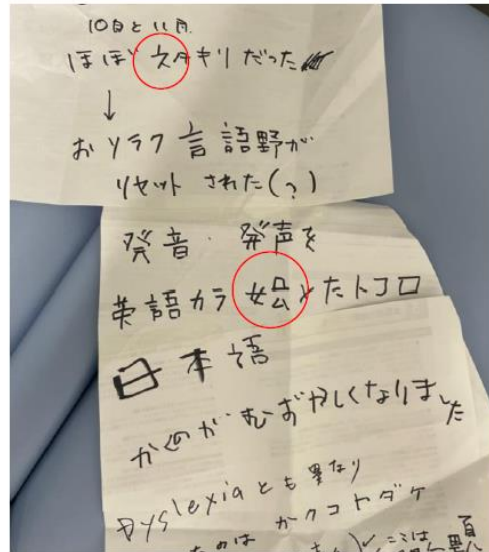 10月と11月
ほぼネタキリだった
↓
おソラク言語野が
リセットされた(?)
発音・発声を
英語カラ始メたトコロ
日本語
かくのがむずかしくなりました
Dyslexiaとも異なり
カクコトダケ